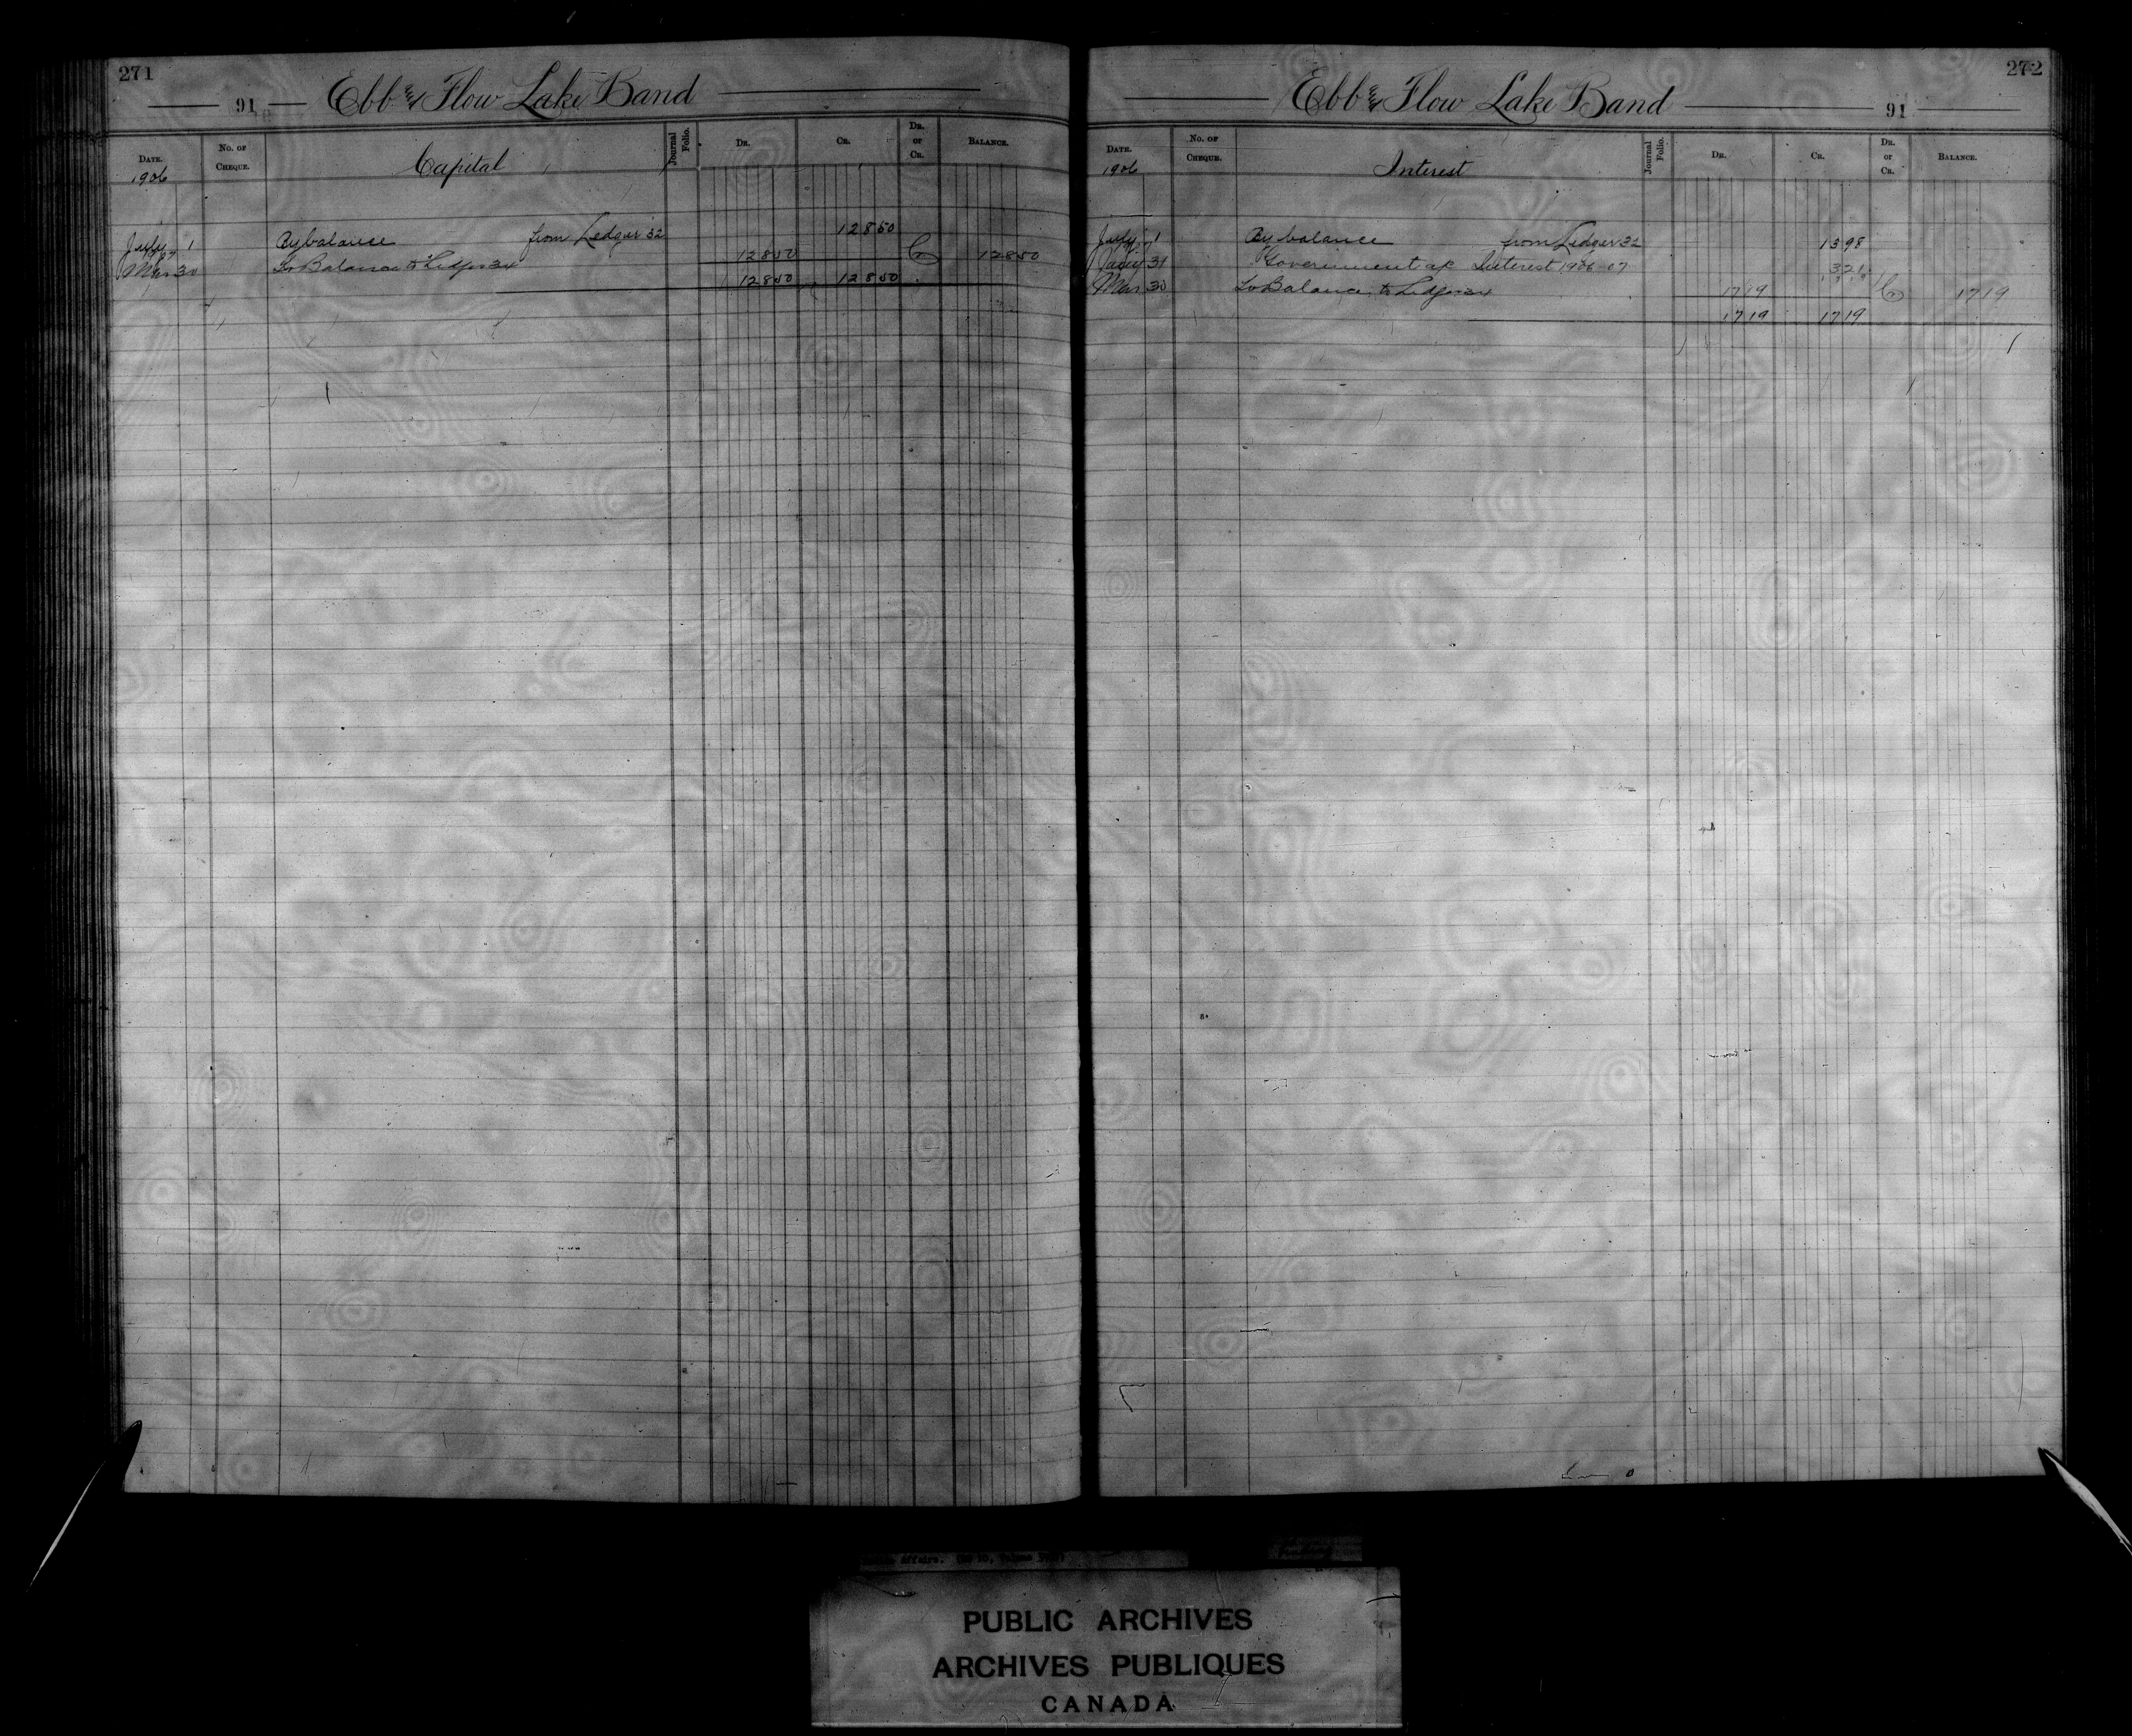 271
91 Ebb & Flow Lake Band
Date. No. of Cheque. Capital Journal Folio. Dr. Cr. Dr. or Cr. Balance.
1906
July 1 By balance from Ledger 32 128 50
07
Mar 30 To Balance to Ledger 34 128 50 Cr 128 50
128 50 128 50
272
Ebb & Flow Lake Band 91
Date. No. of Cheque. Interest Journal Folio. Dr. Cr. Dr. or Cr. Balance.
1906
July 1 By balance from Ledger 32 13 98
Jany 31 Government a/c Interest 1906-07 3 21
Mar 30 To Balance to Ledger 34 17 19 Cr 17 19
17 19 17 19
Affairs. (RG 10, Volume
PUBLIC ARCHIVES
ARCHIVES PUBLIQUES
CANADA